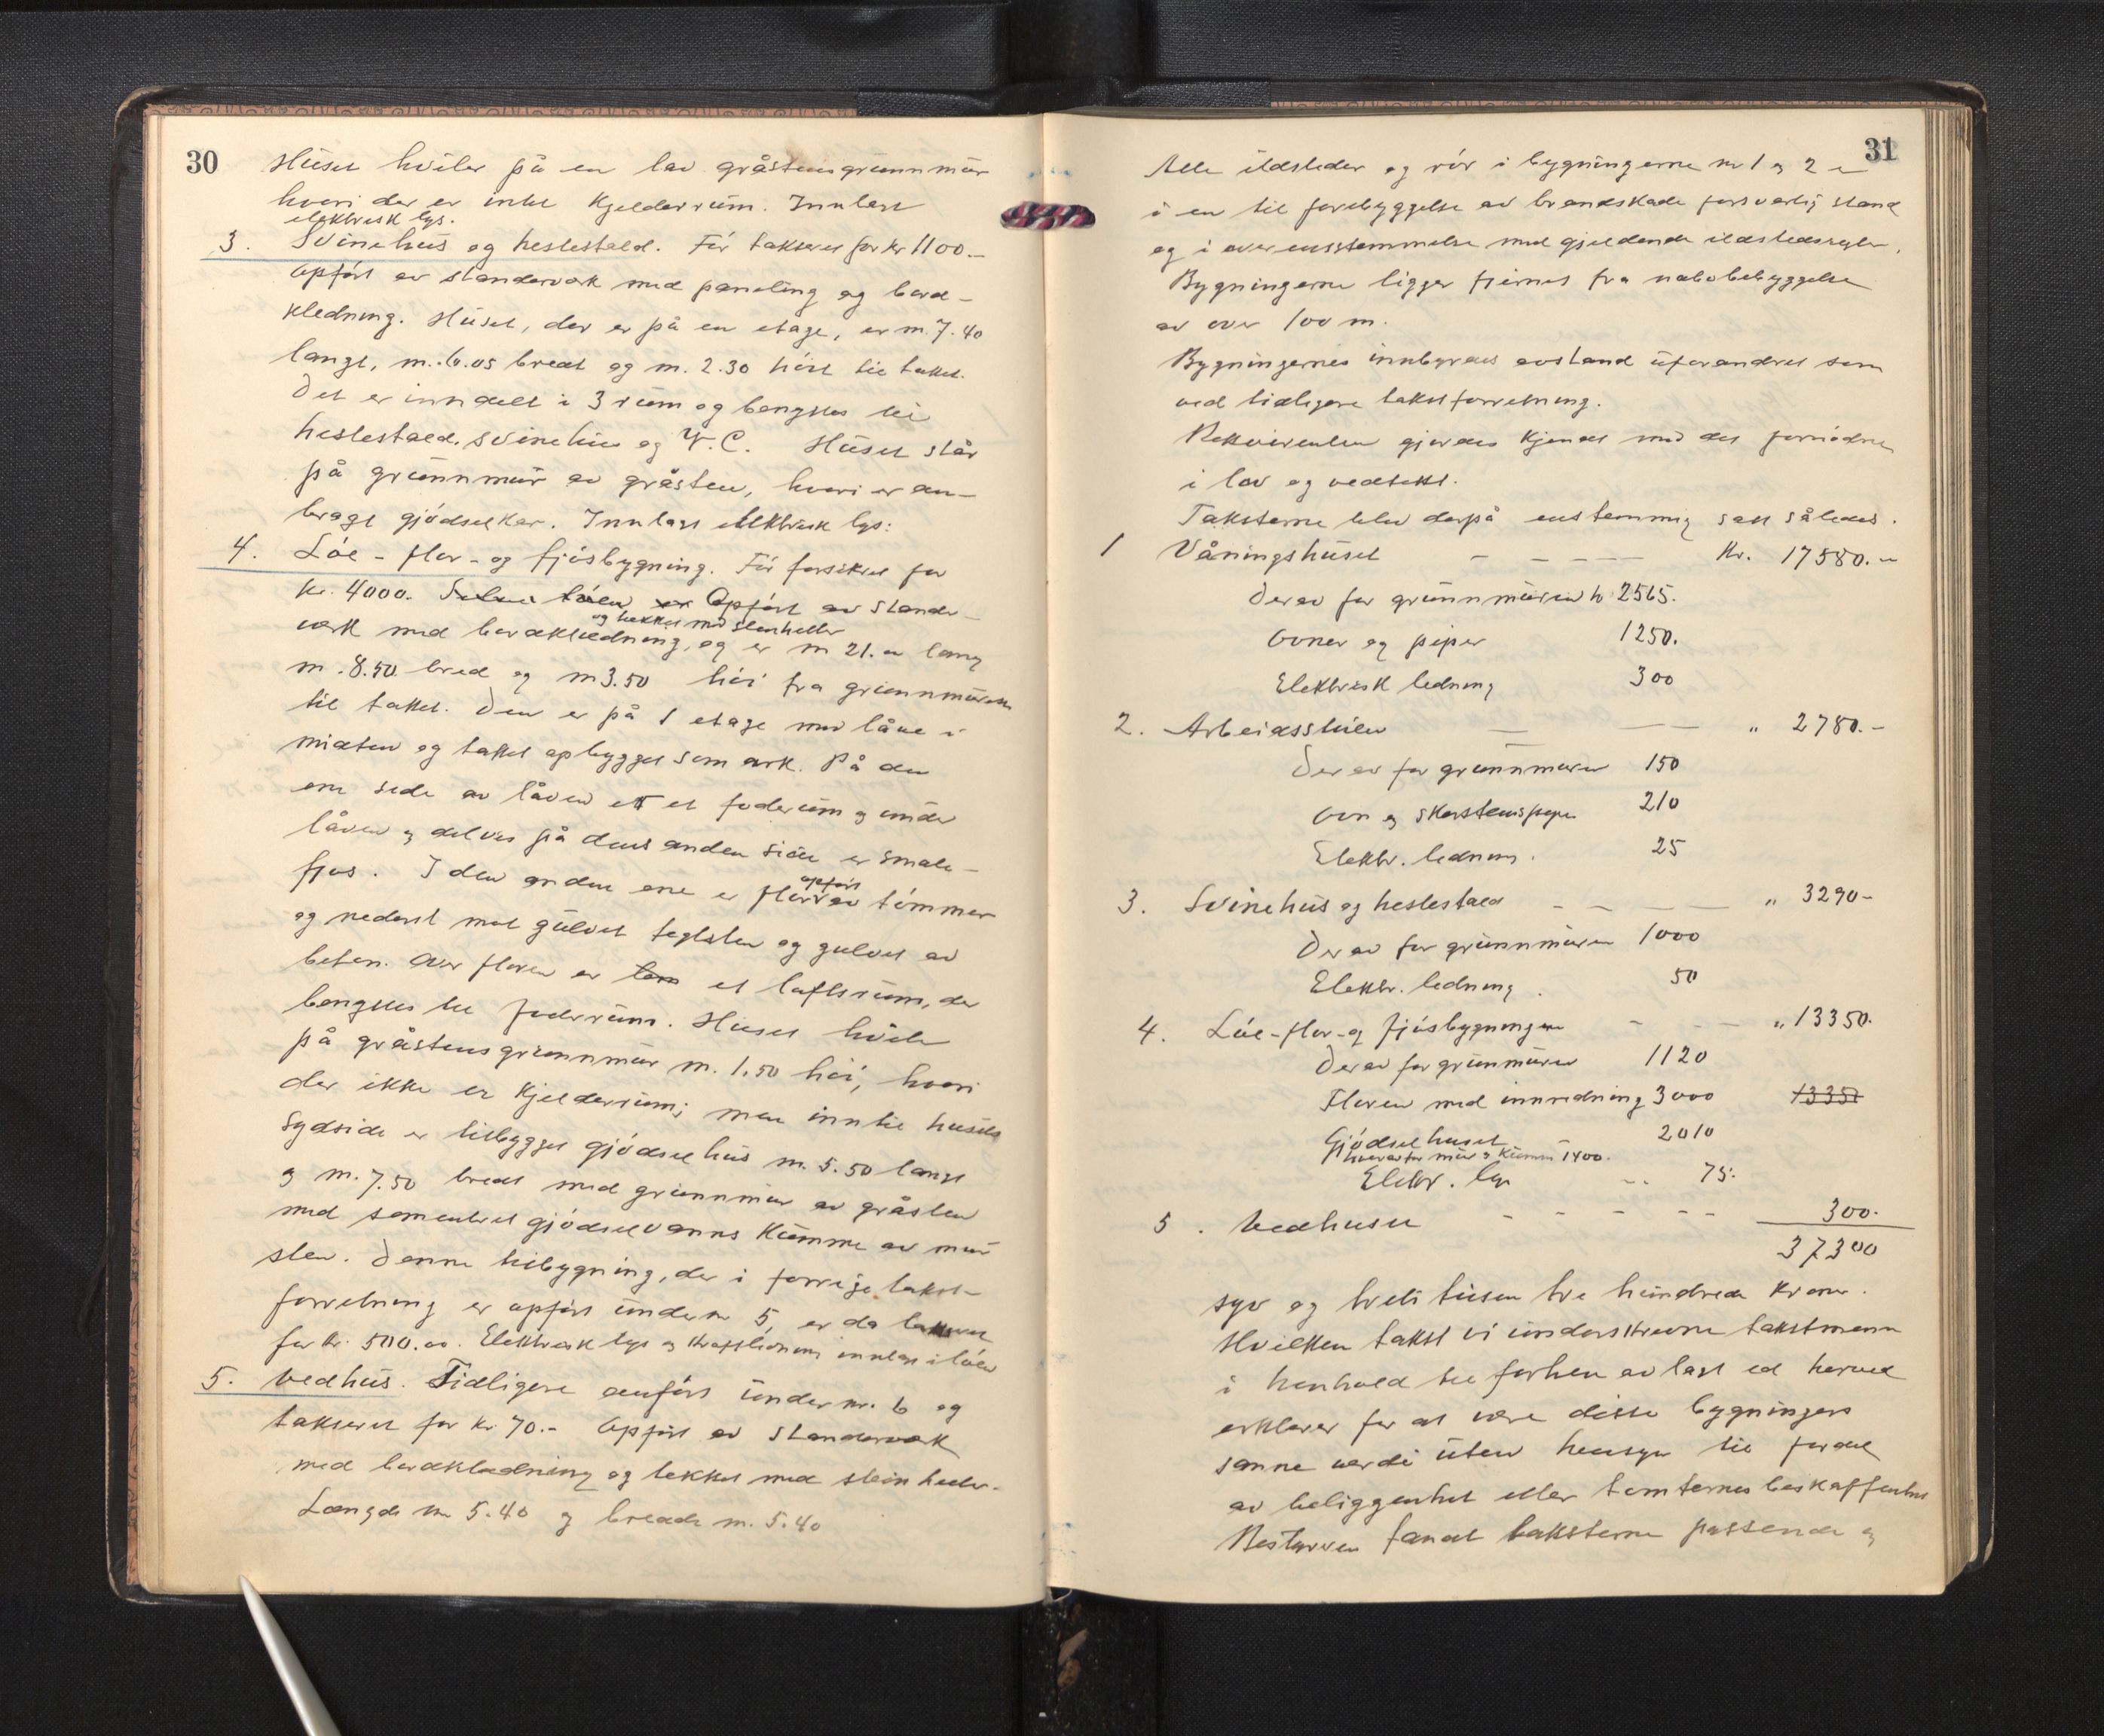 30
Huset hviler på en lav gråstensgrunnmur
hvori der er intet Kjelderrum. Innlagt
elektrisk lys.
3. Svinehus og hestestald. Før takseret for kr 1100.-
Opført av standervark med paneling og bord-
kledning. Huset, der er på en etage, er m. 7.40
langt, m. 6.05 bredt og m. 2.30 høit til taket.
Det er inndelt i 3 rum og benyttes til
hestestald, svinehus og W.C. Huset står
på grunnmur av gråsten, hvori er an-
bragt gjødselkar. Innlagt elektrisk lys.
4. Løe - flor - og fjøsbygning. Før forsikret for
kr. 4000. Selve løen er Opført av stander-
og tekket med stenheller
verk med bordkledning, og er m 21.00 lang
m. 8.50 bred og m 3.50 høi fra grunnmuren
til taket. Den er på 1 etage med låve i
midten og taket opbygget som ark. På den
ene side av låven er et foderum og under
låven og delvis på dens anden side er smale-
fjøs. I den anden ene er flor opført av tømmer
og nederst mot gulvet teglsten og gulvet av
beton. Over floren er et loftsrum, der
benyttes til foderrum. Huset hviler
på gråstensgrunnmur m. 1.50 høi, hvori
der ikke er Kjelderrum; men inntil husets
Sydside er tilbygget gjødselhus m. 5.50 langt
og m. 7.50 bredt med grunnmur av gråsten
med sementert gjødselvanns Kumme av mur
sten. Denne tilbygning, der i forrige takst-
forretning er opført under nr 5, er da takseret
for kr. 500.00. Elektrisk lys og Kraftledning innlagt i løen
5. Vedhus. Tidligere anført under nr. 6 og
takseret for kr 70.- Opført av standervark
med bordkledning og tekket med stein heller.
Længde m 5.40 og bredde m. 5.40
31
Alle ildsteder og rør i bygningerne nr 1 og 2 er
i en til forebyggelse av brandskade forsvarlig stand
og i overensstemmelse med gjeldende ildstedsregler.
Bygningerne ligger fjernet fra nabobebyggelse
av over 100 m.
Bygningernes innbyrdes avstand uforandret som
ved tidligere takstforretning.
Rekvirenten gjordes Kjendt med det fornødne
i lov og vedtekt.
Taksterne blev derpå enstemmig satt således.
1 Våningshuset - - - - Kr. 17580.-
Derav for grunnmuren kr 2565.
Ovner og piper 1250.
Elektrisk ledning 300
2. Arbeidsstuen - - " 2780.-
Derav for grunnmuren 150
Ovn og skorstenspipe 210
Elektr. ledning. 25
3. Svinehus og hestestald - - - - " 3290-
Derav for grunnmuren 1000
Elektr. ledning. 50
4. Løe-flor-og fjøsbygningen - - - " 13350.
Derav for grunnmuren 1120
Floren med innredning 3000 1335
Gjødselhuset 2010
hvorav for mur og Kumme 1400.
Elektr. lys 75.
5. Vedhuset - - - - - - 300.
37300
syv og tretti tusen tre hundrede Kroner.
Hvilken takst vi underskrevne takstmenn
i henhold til forhen avlagt ed herved
erklærer for at være disse bygningers
sanne verdi uten hensyn til fordel
av beliggenhet eller tomternes beskaffenhet
Bestyreren fandt taksterne passende og